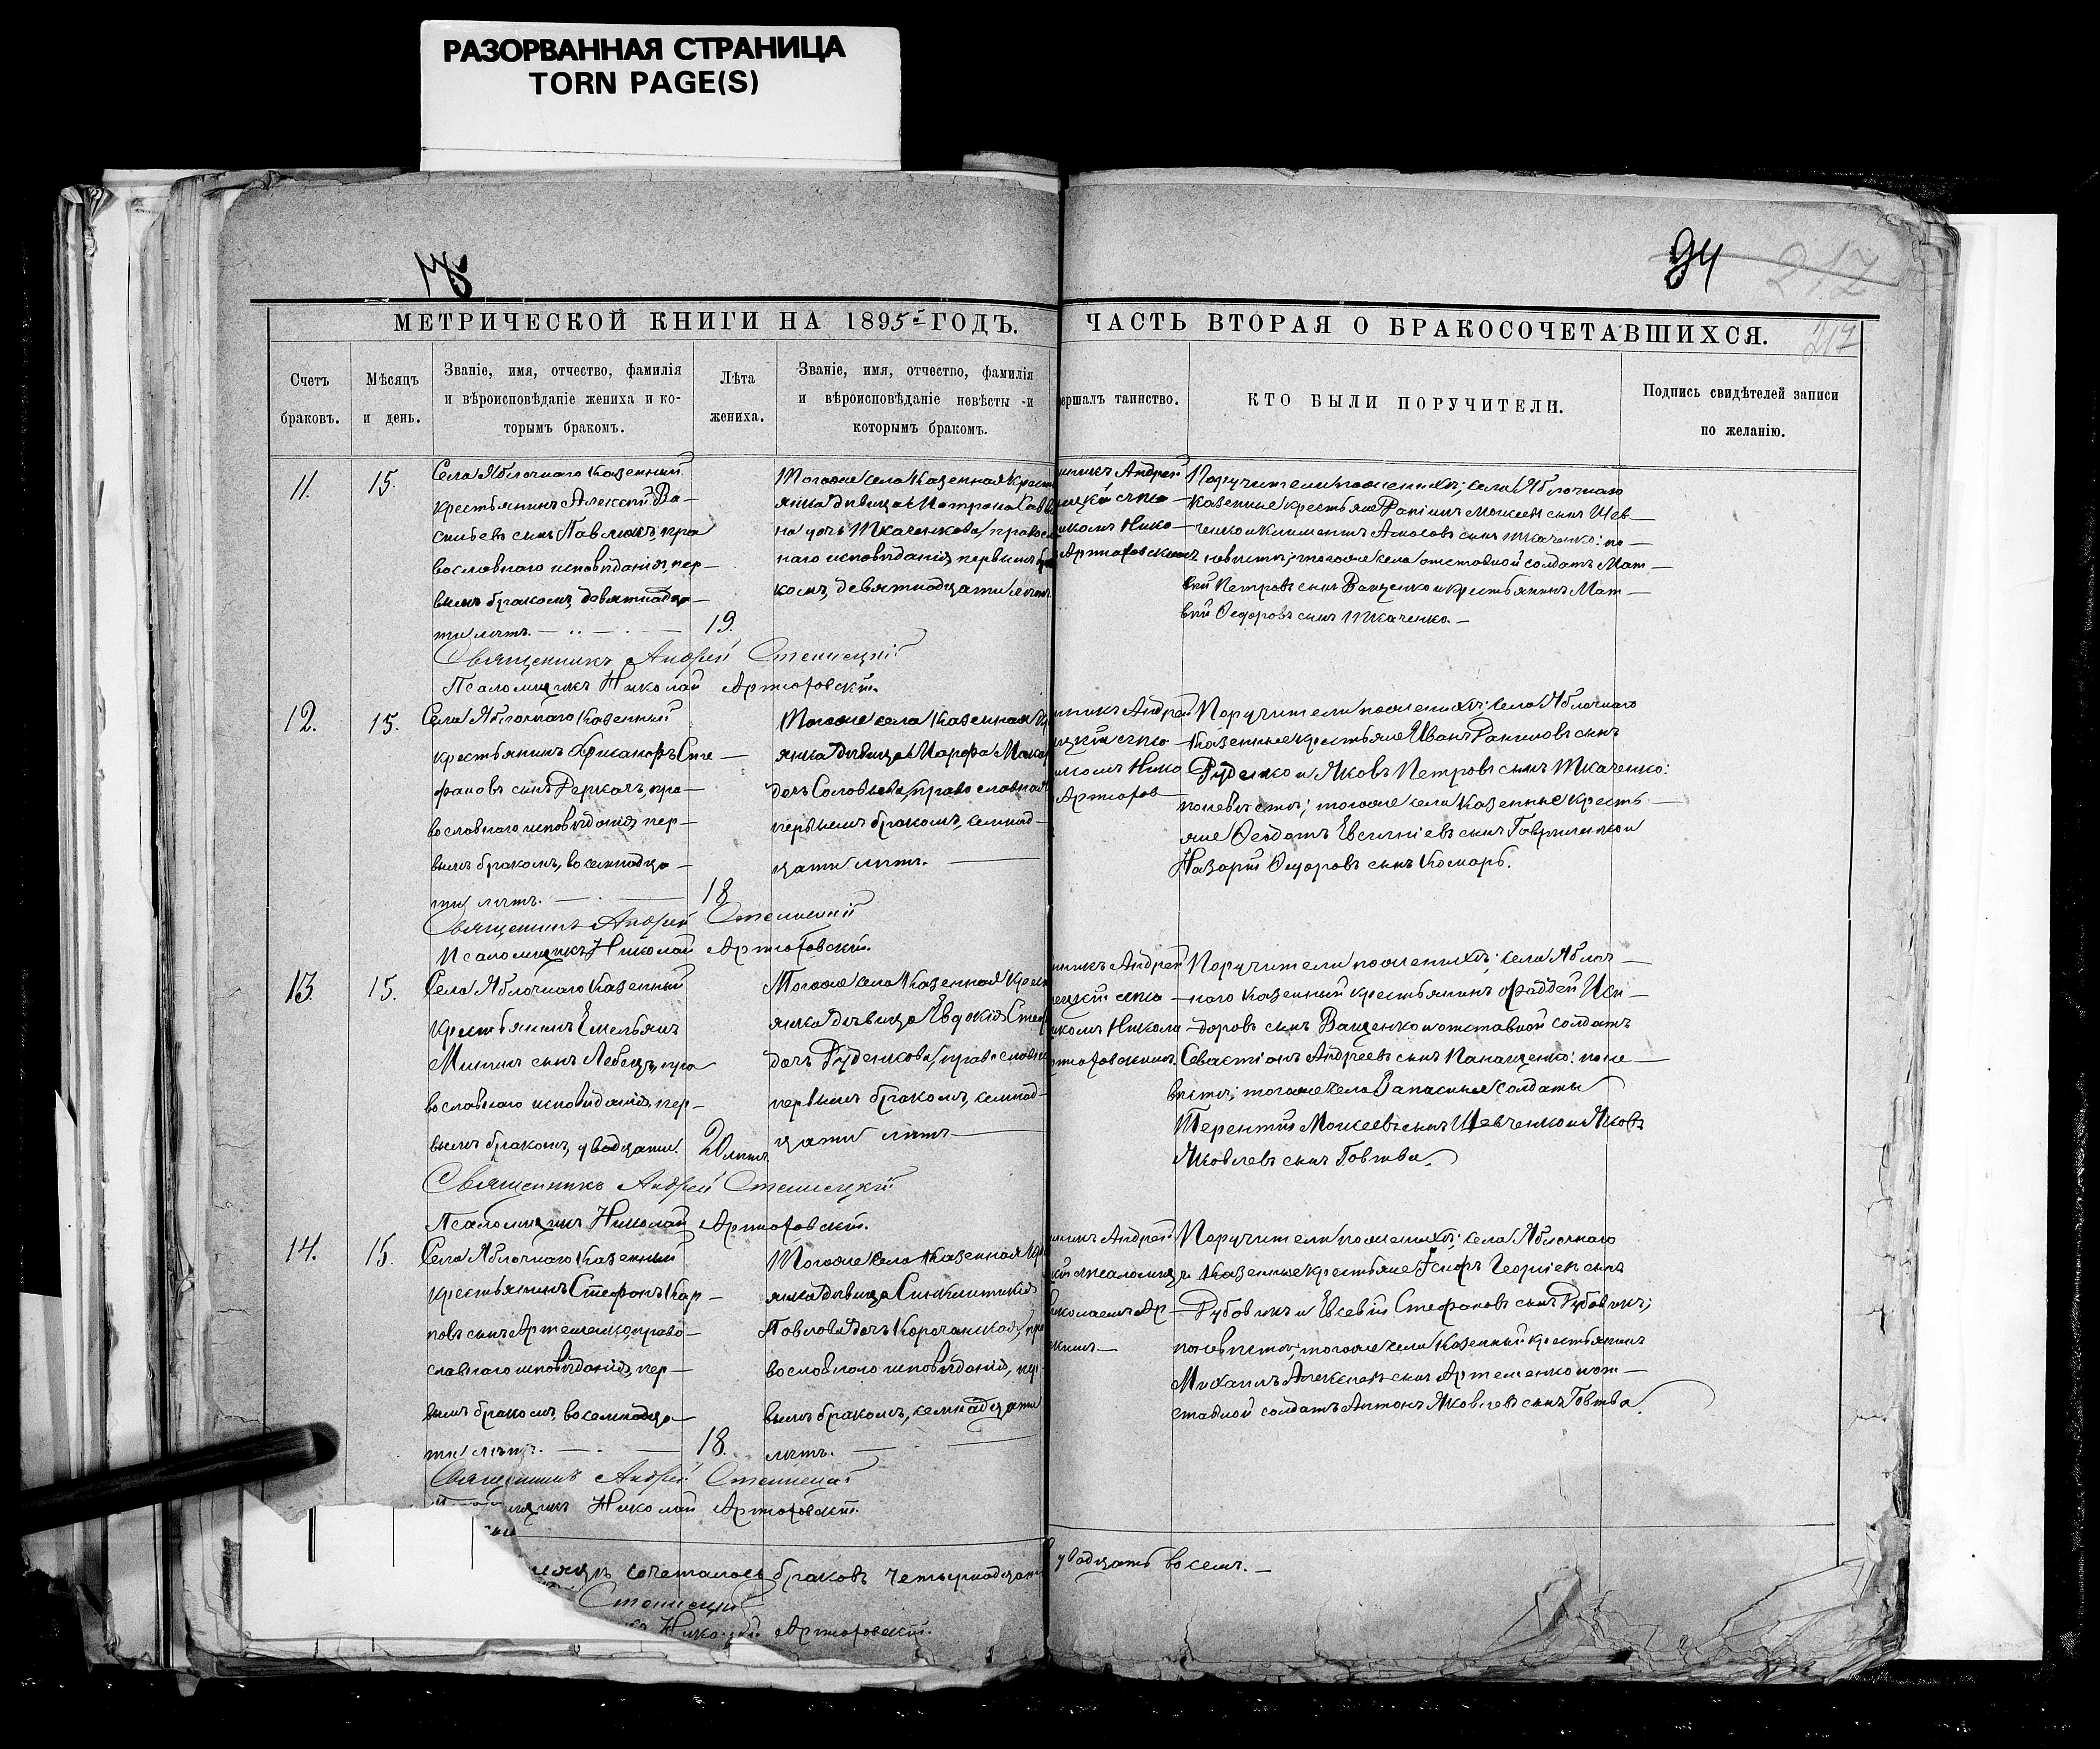 РАЗОРВАННАЯ СТРАНИЦА
TORN PAGE(S)
94
217
МЕТРИЧЕСКОЙ КНИГИ НА 1895й ГОДЪ.
ЧАСТЬ ВТОРАЯ О БРАКОСОЧЕТАВШИХСЯ.
Счетъ
браковъ.
Мѣсяцъ
и день.
Званіе, имя, отчество, фамилія
и вѣроисповѣданіе жениха и ко-
торымъ бракомъ.
Лѣта
жениха.
Званіе, имя, отчество, фамилія
и вѣроисповѣданіе невѣсты и
которымъ бракомъ.
ершалъ таинство.
КТО БЫЛИ ПОРУЧИТЕЛИ.
Подпись свидѣтелей записи
по желанію.
11.
15.
Села Яблочнаго казенный
крестьянинъ Алексій Ва-
сильевъ сынъ Павлюкъ, пра
вославнаго исповѣданія, пер-
вымъ бракомъ, девятнадца-
ти лѣтъ.
19.
Тогоже села казенная крест
янка дѣвица Матрона Савв
на дочь Ткаченкова, правосл
наго исповѣданія, первымъ
комъ, девятнадцати лѣтъ.
никъ Андрей
цкій съ пса-
комъ Нико-
Артюховскимъ
Поручители по женихѣ; села Яблочнаго
казенные крестьяне Даніилъ Моисеевъ сынъ Шев-
ченко и Климентъ Амосовъ сынъ Ткаченко: по-
невѣстѣ; тогоже села отставной солдатъ Мат-
вій Петровъ сынъ Ващенко и крестьянинъ Мат-
вій Ѳедоровъ сынъ Ткаченко.
Священникъ Андрей Стеницкій
Псаломщикъ Николай Артюховскій.
12.
15.
Села Яблочнаго казенный
крестьянинъ Никаноръ Сте-
фановъ сынъ Деркачъ, пра-
вославнаго исповѣданія, пер-
вымъ бракомъ, восемнадца-
ти лѣтъ.
18
Тогоже села казенная кр
янка дѣвица Марфа Макар
дочь Соловьева, православная
первымъ бракомъ, семнад-
цати лѣтъ.
никъ Андрей
цкій съ пса-
комъ Нико
Артюхов
Поручители по женихѣ; села Яблочнаго
казенные крестьяне Иванъ Даниловъ сынъ
Руденко и Яковъ Петровъ сынъ Ткаченко:
по невѣстѣ; тогоже села казенные кресть-
яне Ѳеодотъ Евсигніевъ сынъ Гавриленко и
Назарій Ѳедоровъ сынъ Комаръ.
Священникъ Андрей Стеницкій
Псаломщикъ Николай Артюховскій.
13
15.
Села Яблочнаго казенный
крестьянинъ Емельянъ
Мининъ сынъ Лебедь, пра
вославнаго исповѣданія, пер-
вымъ бракомъ, двадцати.
20 лѣтъ.
Тогоже села казенная крест
янка дѣвица Евдокія Стеф
дочь Руденкова, православн
первымъ бракомъ, семнад-
цати лѣтъ
никъ Андрей
ецкій съ пса
комъ Никола
ртюховскимъ.
Поручители по женихѣ; села Яблоч-
наго казенный крестьянинъ Фаддей Иси-
доровъ сынъ Ващенко и отставной солдатъ
Севастіанъ Андреевъ сынъ Панащенко: по не-
вѣстѣ; тогоже села Запасные солдаты
Терентій Моисеевъ сынъ Шевченко и Яковъ
Яковлевъ сынъ Говтва.
Священникъ Андрей Стеницкій
Псаломщикъ Николай Артюховскій.
14.
15.
Села Яблочнаго казенный
крестьянинъ Стефанъ Кар-
повъ сынъ Артеменко, право-
славнаго исповѣданія, пер-
вымъ бракомъ, восемнадца-
ти лѣтъ.
18.
Тогоже села казенная кр
янка дѣвица Синклитикія
Павлова дочь Корочанская, пра
вославнаго исповѣданія, пер-
вымъ бракомъ, семнадцати
лѣтъ.
никъ Андрей
кій съ псаломщ
иколаемъ Ар-
кимъ
Поручители по женихѣ; села Яблочнаго
казенные крестьяне Іосифъ Георгіевъ сынъ
Рубовикъ и Евсевій Стефановъ сынъ Рубовикъ;
по невѣстѣ; тогоже села казенный крестьянинъ
Михаилъ Алексѣевъ сынъ Артеменко и от-
ставной солдатъ Антонъ Яковлевъ сынъ Говтва.
Священникъ Андрей Стеницкій
Николай Артюховскій.
сочеталось браковъ четырнадцать
двадцать восемь.
Стеницкій
Николай Артюховскій.